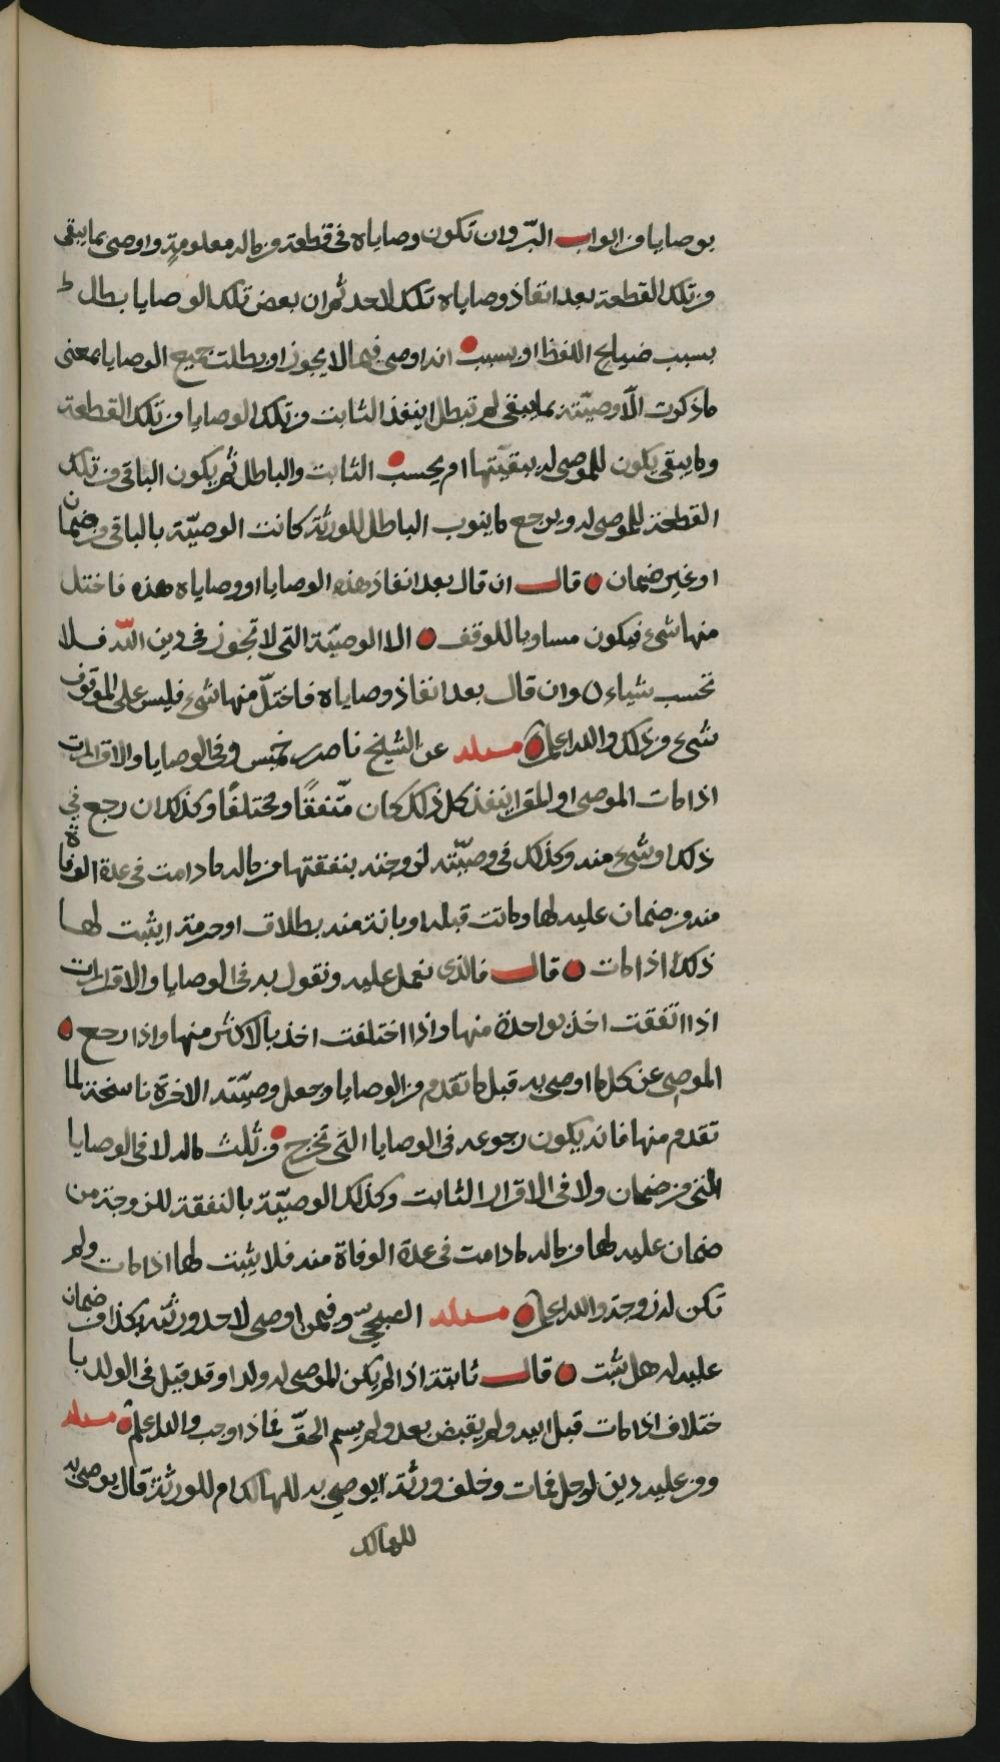 بوصايا من ابواب البرّ وان تكون وصاياه في قطعة من ماله معلومةٍ واوصى بما يبقى
من تلك القطعة بعد انفاذ وصاياه تلك لاحد ثم ان بعض تلك الوصايا بطل
بسبب ضياع اللفظ او بسبب انه اوصى فيما لا يجوز او بطلت جميع الوصايا بمعنى
ما ذكرت الّا وصيّته بما يبقى لم تبطل اينفذ الثابت من تلك الوصايا من تلك القطعة
وما يبقى يكون للموصى له ببقيّتها ام يحسب الثابت والباطل ثم يكون الباقي من تلك
القطعة للموصى له ويرجع ما ينوب الباطل للورثة كانت الوصيّة بالباقي من ضمان
او غير ضمان قال ان قال بعد انفاذ هذه الوصايا او وصاياه هذه فاختل
منها شيء فيكون مساويا للوقف الا الوصيّة التي لا تجوز في دين اللّه فلا
تحسب شياء وان قال بعد انفاذ وصاياه فاختلّ منها شيء فليس على الموقوف
شيء من ذلك والله اعلم مسئله عن الشيخ ناصر بن خميس وفي الوصايا والاقرارات
اذا مات الموصي او المقر اينفذ كل ذلك كان متّفقًا ومختلفًا وكذلك ان رجع في
ذلك او شيء منه وكذلك في وصيّته لزوجته بنفقتها من ماله ما دامت في عدة الوفاة
منه من ضمان عليه لها وماتت قبله او بانة منه بطلاق او حرمة ايثبت لها
ذلك اذا مات قال فالذي نعمل عليه ونقول به في الوصايا والاقرارات
اذا اتفقت اخذ بواحدة منها واذا اختلفت اخذ بالاكثر منها واذا رجع
الموصي عن كل ما اوصى به قبل ما تقدم من الوصايا وجعل وصيّته الاخرة ناسخة لما
تقدم منها فانه يكون رجوعه في الوصايا التي تخرج من ثلث ماله لا في الوصايا
التي من ضمان ولا في الاقرار الثابت وكذلك الوصيّة بالنفقة للزوجة من
ضمان عليه لها من ماله ما دامت في عدة الوفاة منه فلا يثبت لها اذا مات ولم
تكن له زوجة والله اعلم مسئله الصبحي وفيمن اوصى لاحد ورثته بكذا من ضمان
عليه له هل يثبت قال ثابتة اذا لم يكن للموصى له ولد او قد قيل في الولد با
ختلاف اذا مات قبل ابيه ولم يقبض بعد ولم يسم الحقّ فماذا وجب والله اعلم مسئله
ومن عليه دين لرجل فمات وخلف ورثة ايوصي به للهالك ام للورثة قال يوصي به
للهالك